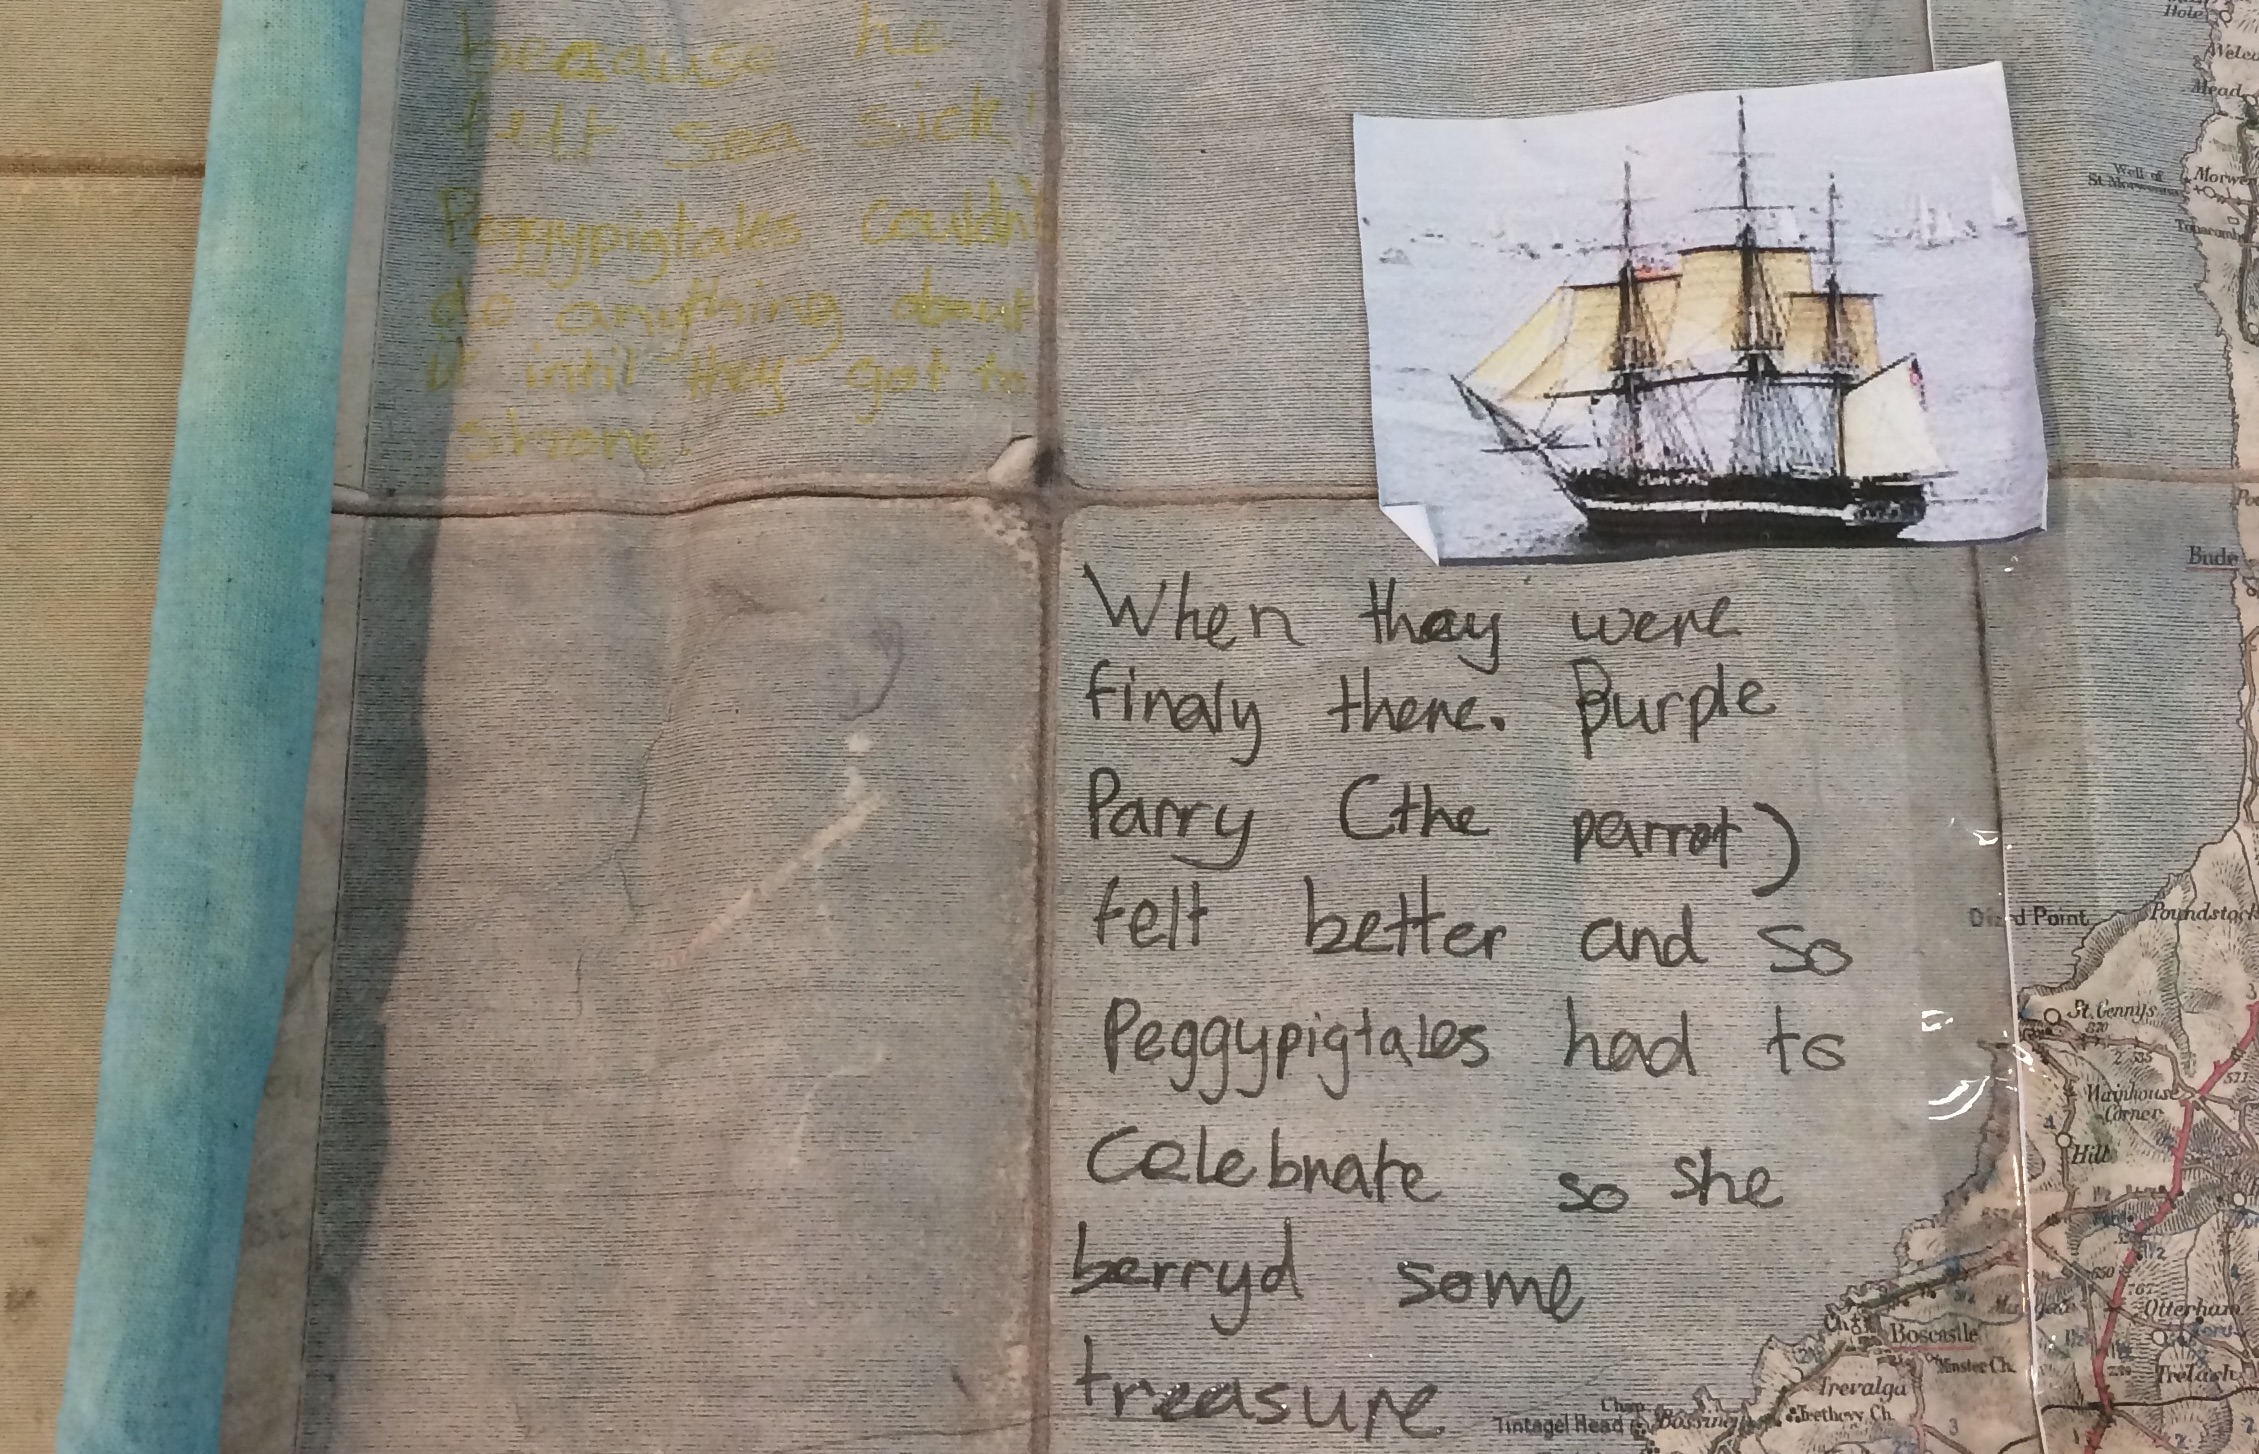 because he
felt sea sick!
Peggypigtales couldn't
do anything about
it intil they got to
shore.
When they were
finaly there. Burple
Parry (the parrot)
felt better and so
Peggypigtales had to
Celebrate so she
berryd some
treasure
Hole
Mead
Well of
St. Morwenna
Bude
Point
Poundstock
St. Gennys
Wainhouse
Corner
Hill
Otterham
Boscastle
Minster Ch.
Trevalga
Trethevy Ch.
Tintagel Head